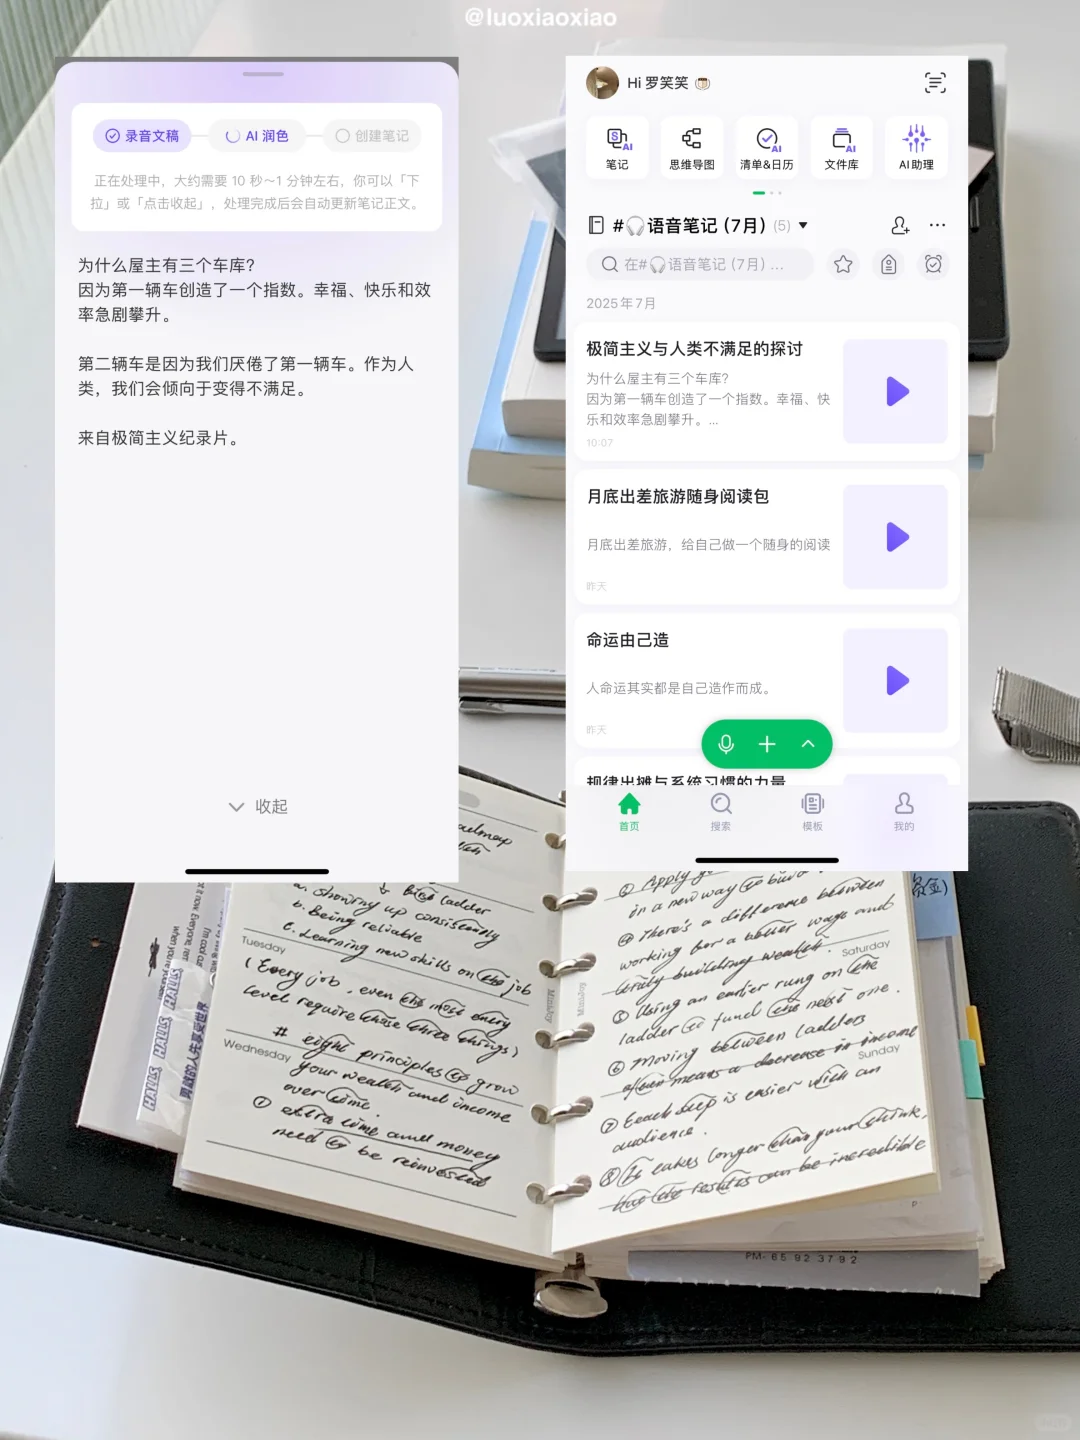 @luoxiaoxiao
录音文稿
AI 润色
创建笔记
正在处理中，大约需要 10 秒～1 分钟左右，你可以「下
拉」或「点击收起」，处理完成后会自动更新笔记正文。
为什么屋主有三个车库？
因为第一辆车创造了一个指数。幸福、快乐和效
率急剧攀升。
第二辆车是因为我们厌倦了第一辆车。作为人
类，我们会倾向于变得不满足。
来自极简主义纪录片。
收起
Hi 罗笑笑
笔记
思维导图
清单&日历
文件库
AI助理
#🎧语音笔记 (7月) (5)
在#🎧语音笔记 (7月) ...
2025年7月
极简主义与人类不满足的探讨
为什么屋主有三个车库？
因为第一辆车创造了一个指数。幸福、快
乐和效率急剧攀升。...
10:07
月底出差旅游随身阅读包
月底出差旅游，给自己做一个随身的阅读
昨天
命运由己造
人命运其实都是自己造作而成。
昨天
规律出摊与系统习惯的力量
首页
搜索
模板
我的
a. showing up consistently
b. Being reliable
c. Learning new skills on the job
Tuesday
(Every job, even the most entry
level require these three things)
Wednesday
# eight principles to grow
your wealth and income
over time.
① extra time and money
need to be reinvested
in a new way to build
④ There's a difference between
working for a better wage and
truly building wealth.
Saturday
⑤ Using an earlier rung on the
ladder to fund the next one.
⑥ Moving between ladders
often means a decrease in income
Sunday
⑦ Each step is easier with an
audience.
⑧ It takes longer than you think,
but the results can be incredible
HALLS HALLS HALLS
勇敢的人先享受世界
PM- 65 92 3792